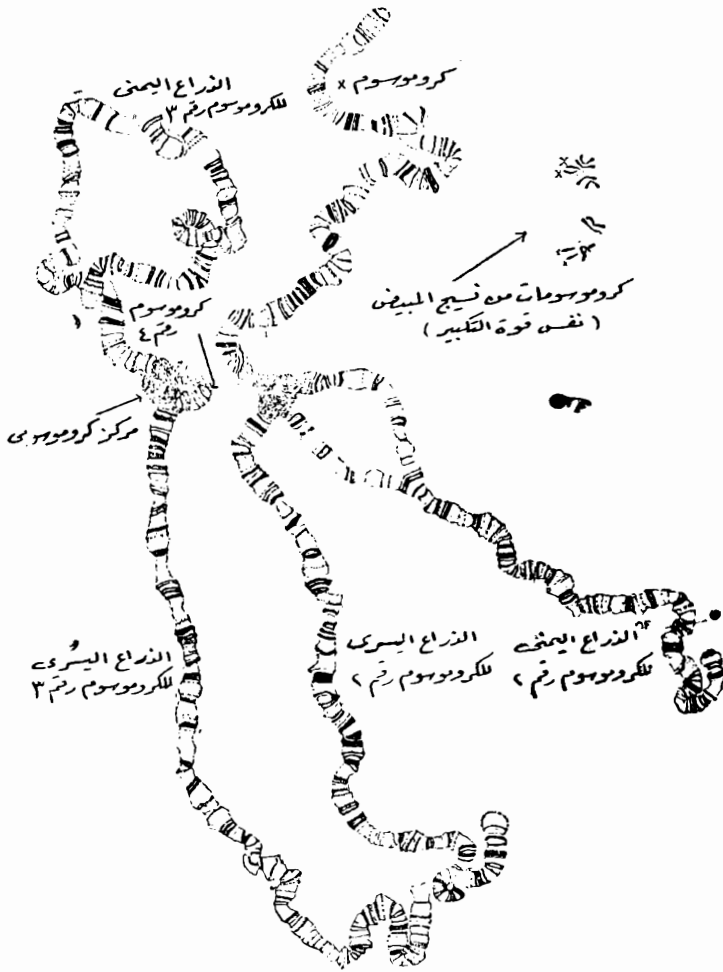 كروموسوم x
الذراع اليمنى
للكروموسوم رقم ٣
x
x
كروموسومات من نسيج المبيض
( نفس قوة التكبير )
كروموسوم
رقم ٤
مركز كروموسومى
الذراع اليسرى
للكروموسوم رقم ٣
الذراع اليسرى
للكروموسوم رقم ٢
الذراع اليمنى
للكروموسوم رقم ٢